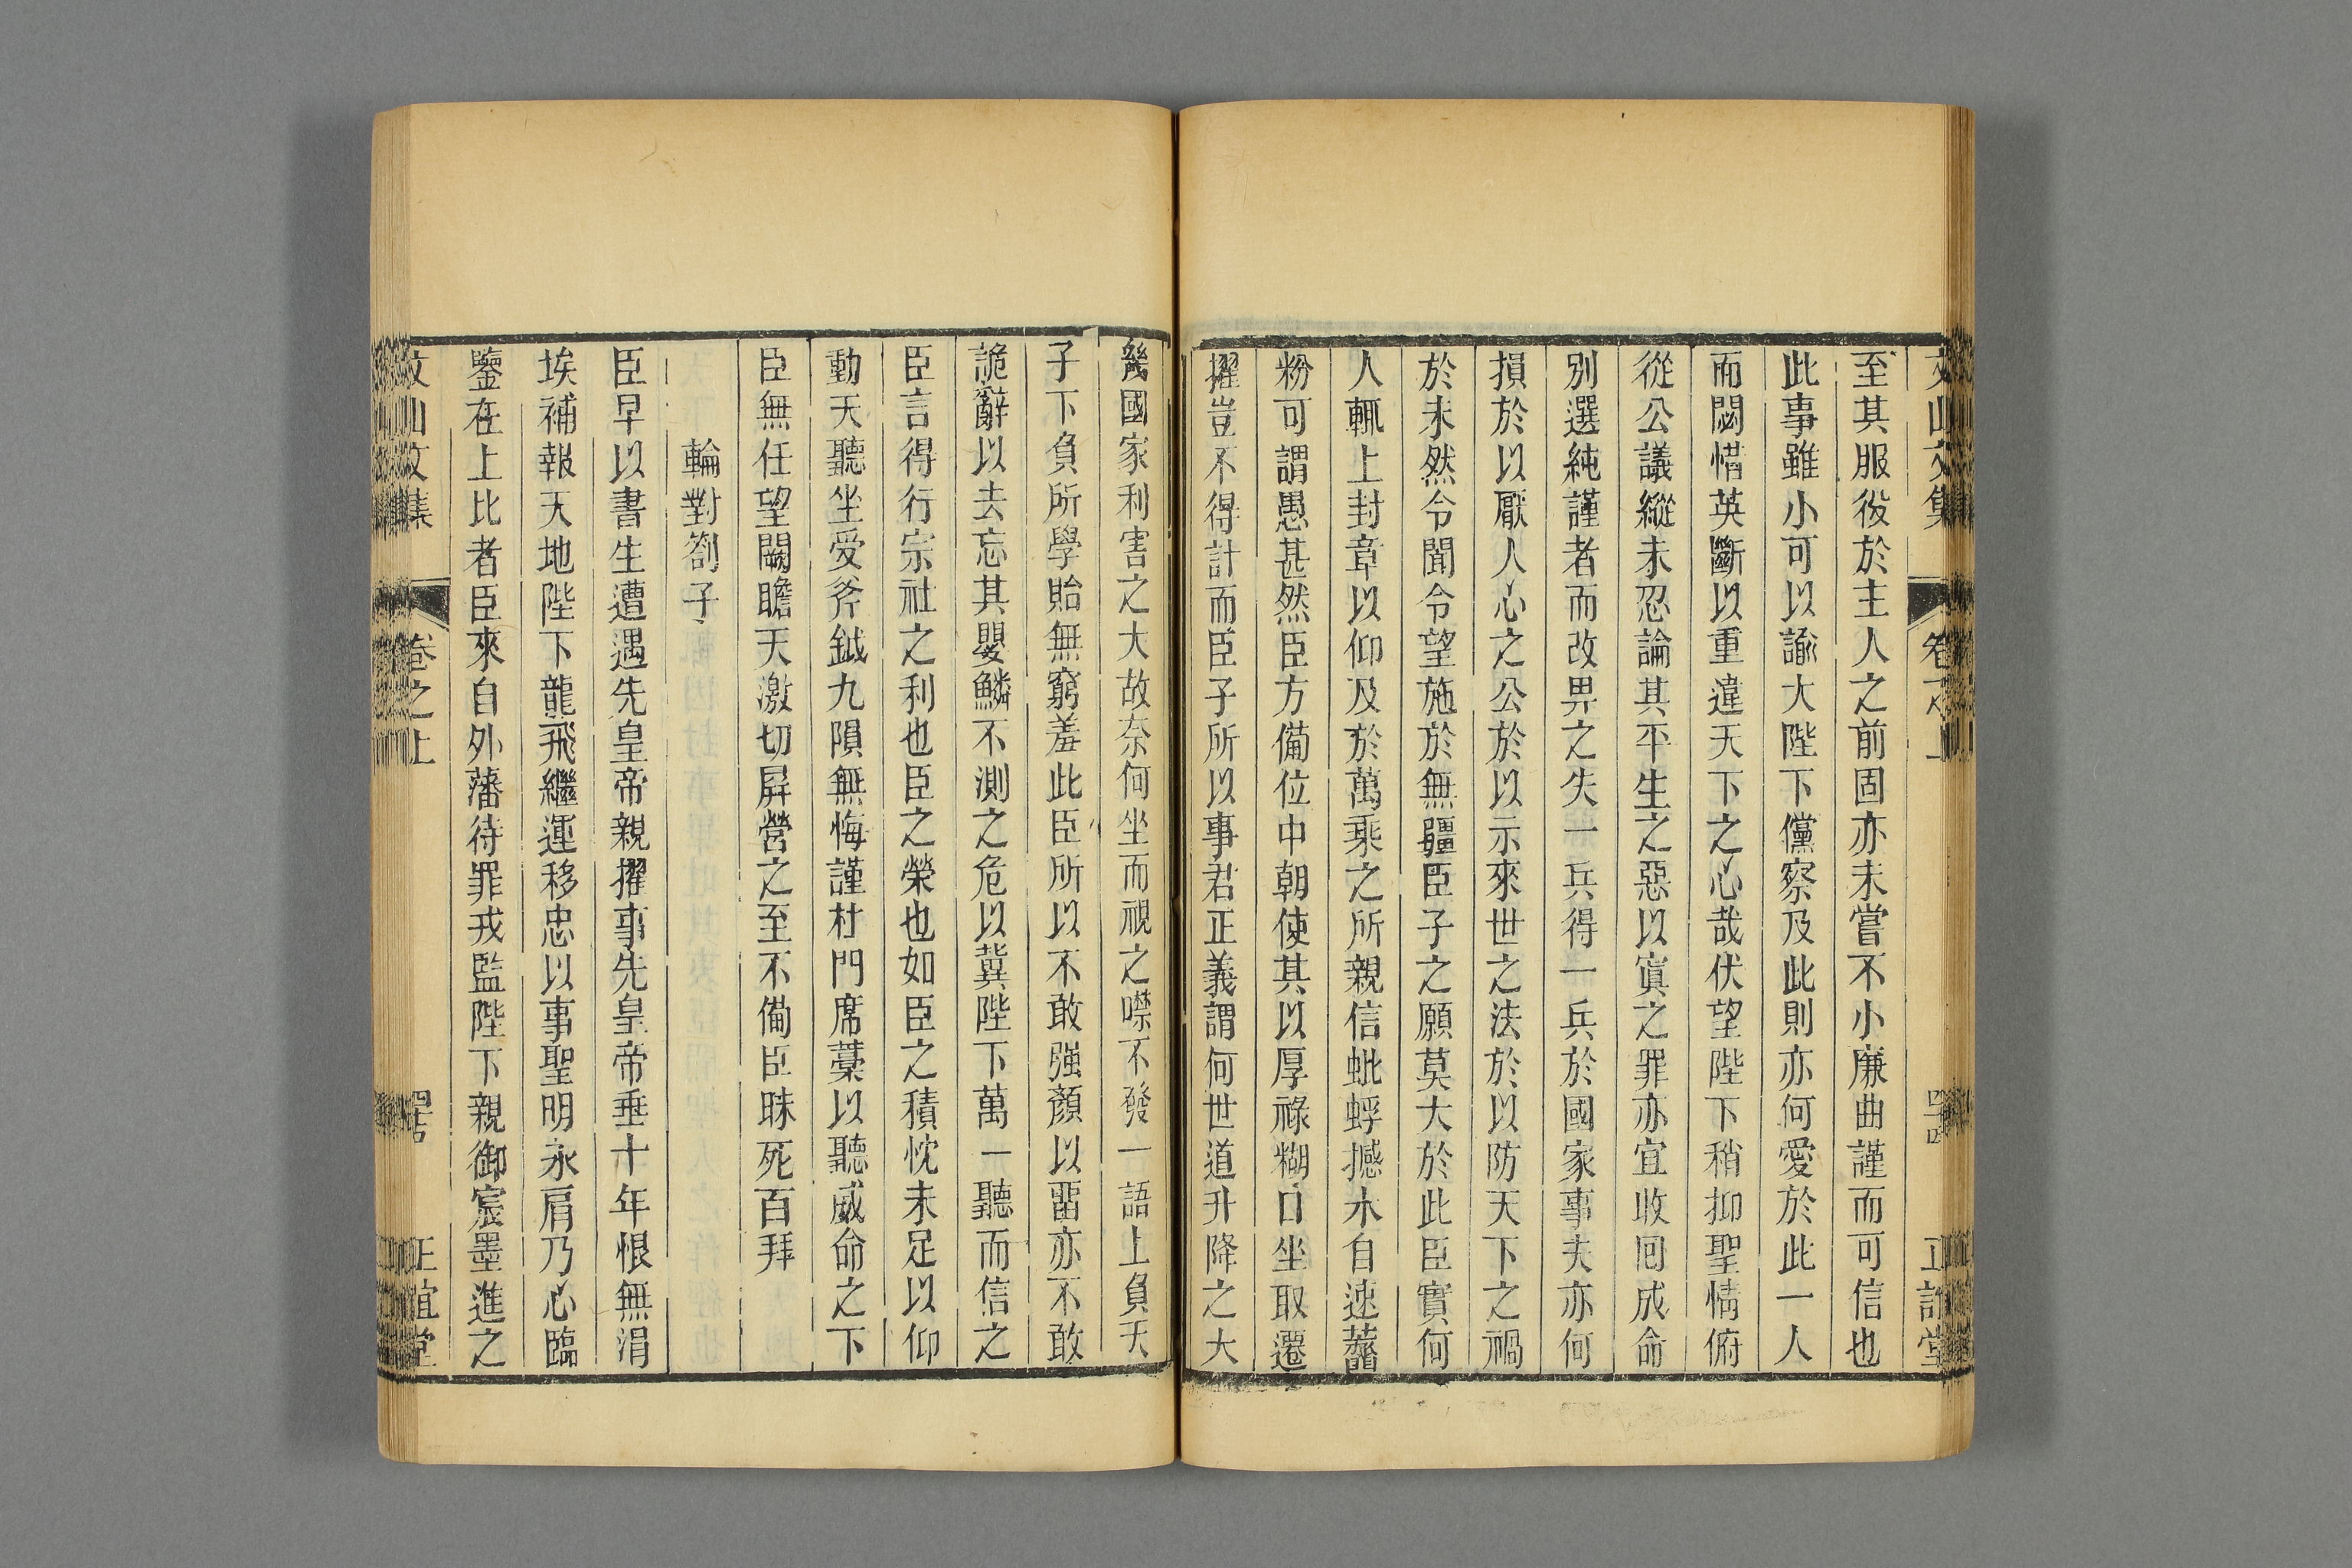 文山文集 卷之上 四十四 正誼堂
至其服役於主人之前固亦未嘗不小廉曲謹而可信也
此事雖小可以諭大陛下儻察及此則亦何愛於此一人
而閟惜英斷以重違天下之心哉伏望陛下稍抑聖情俯
從公議縱未忍論其平生之惡以寘之罪亦宜收囘成命
別選純謹者而改畀之失一兵得一兵於國家事夫亦何
損於以厭人心之公於以示來世之法於以防天下之禍
於未然令聞令望施於無疆臣子之願莫大於此臣實何
人輒上封章以仰及於萬乘之所親信蚍蜉撼木自速虀
粉可謂愚甚然臣方備位中朝使其以厚祿糊口坐取遷
擢豈不得計而臣子所以事君正義謂何世道升降之大
幾國家利害之大故奈何坐而視之噤不發一語上負天
子下負所學貽無窮羞此臣所以不敢强顏以畱亦不敢
詭辭以去忘其嬰鱗不測之危以冀陛下萬一聽而信之
臣言得行宗社之利也臣之榮也如臣之積忱未足以仰
動天聽坐受斧鉞九隕無悔謹杜門席藁以聽威命之下
臣無任望闕瞻天激切屛營之至不備臣昧死百拜
輪對劄子
臣早以書生遭遇先皇帝親擢事先皇帝垂十年恨無涓
埃補報天地陛下龍飛繼運移忠以事聖明永肩乃心臨
鑒在上比者臣來自外藩待罪戎監陛下親御宸墨進之
文山文集 卷之上 四十五 正誼堂